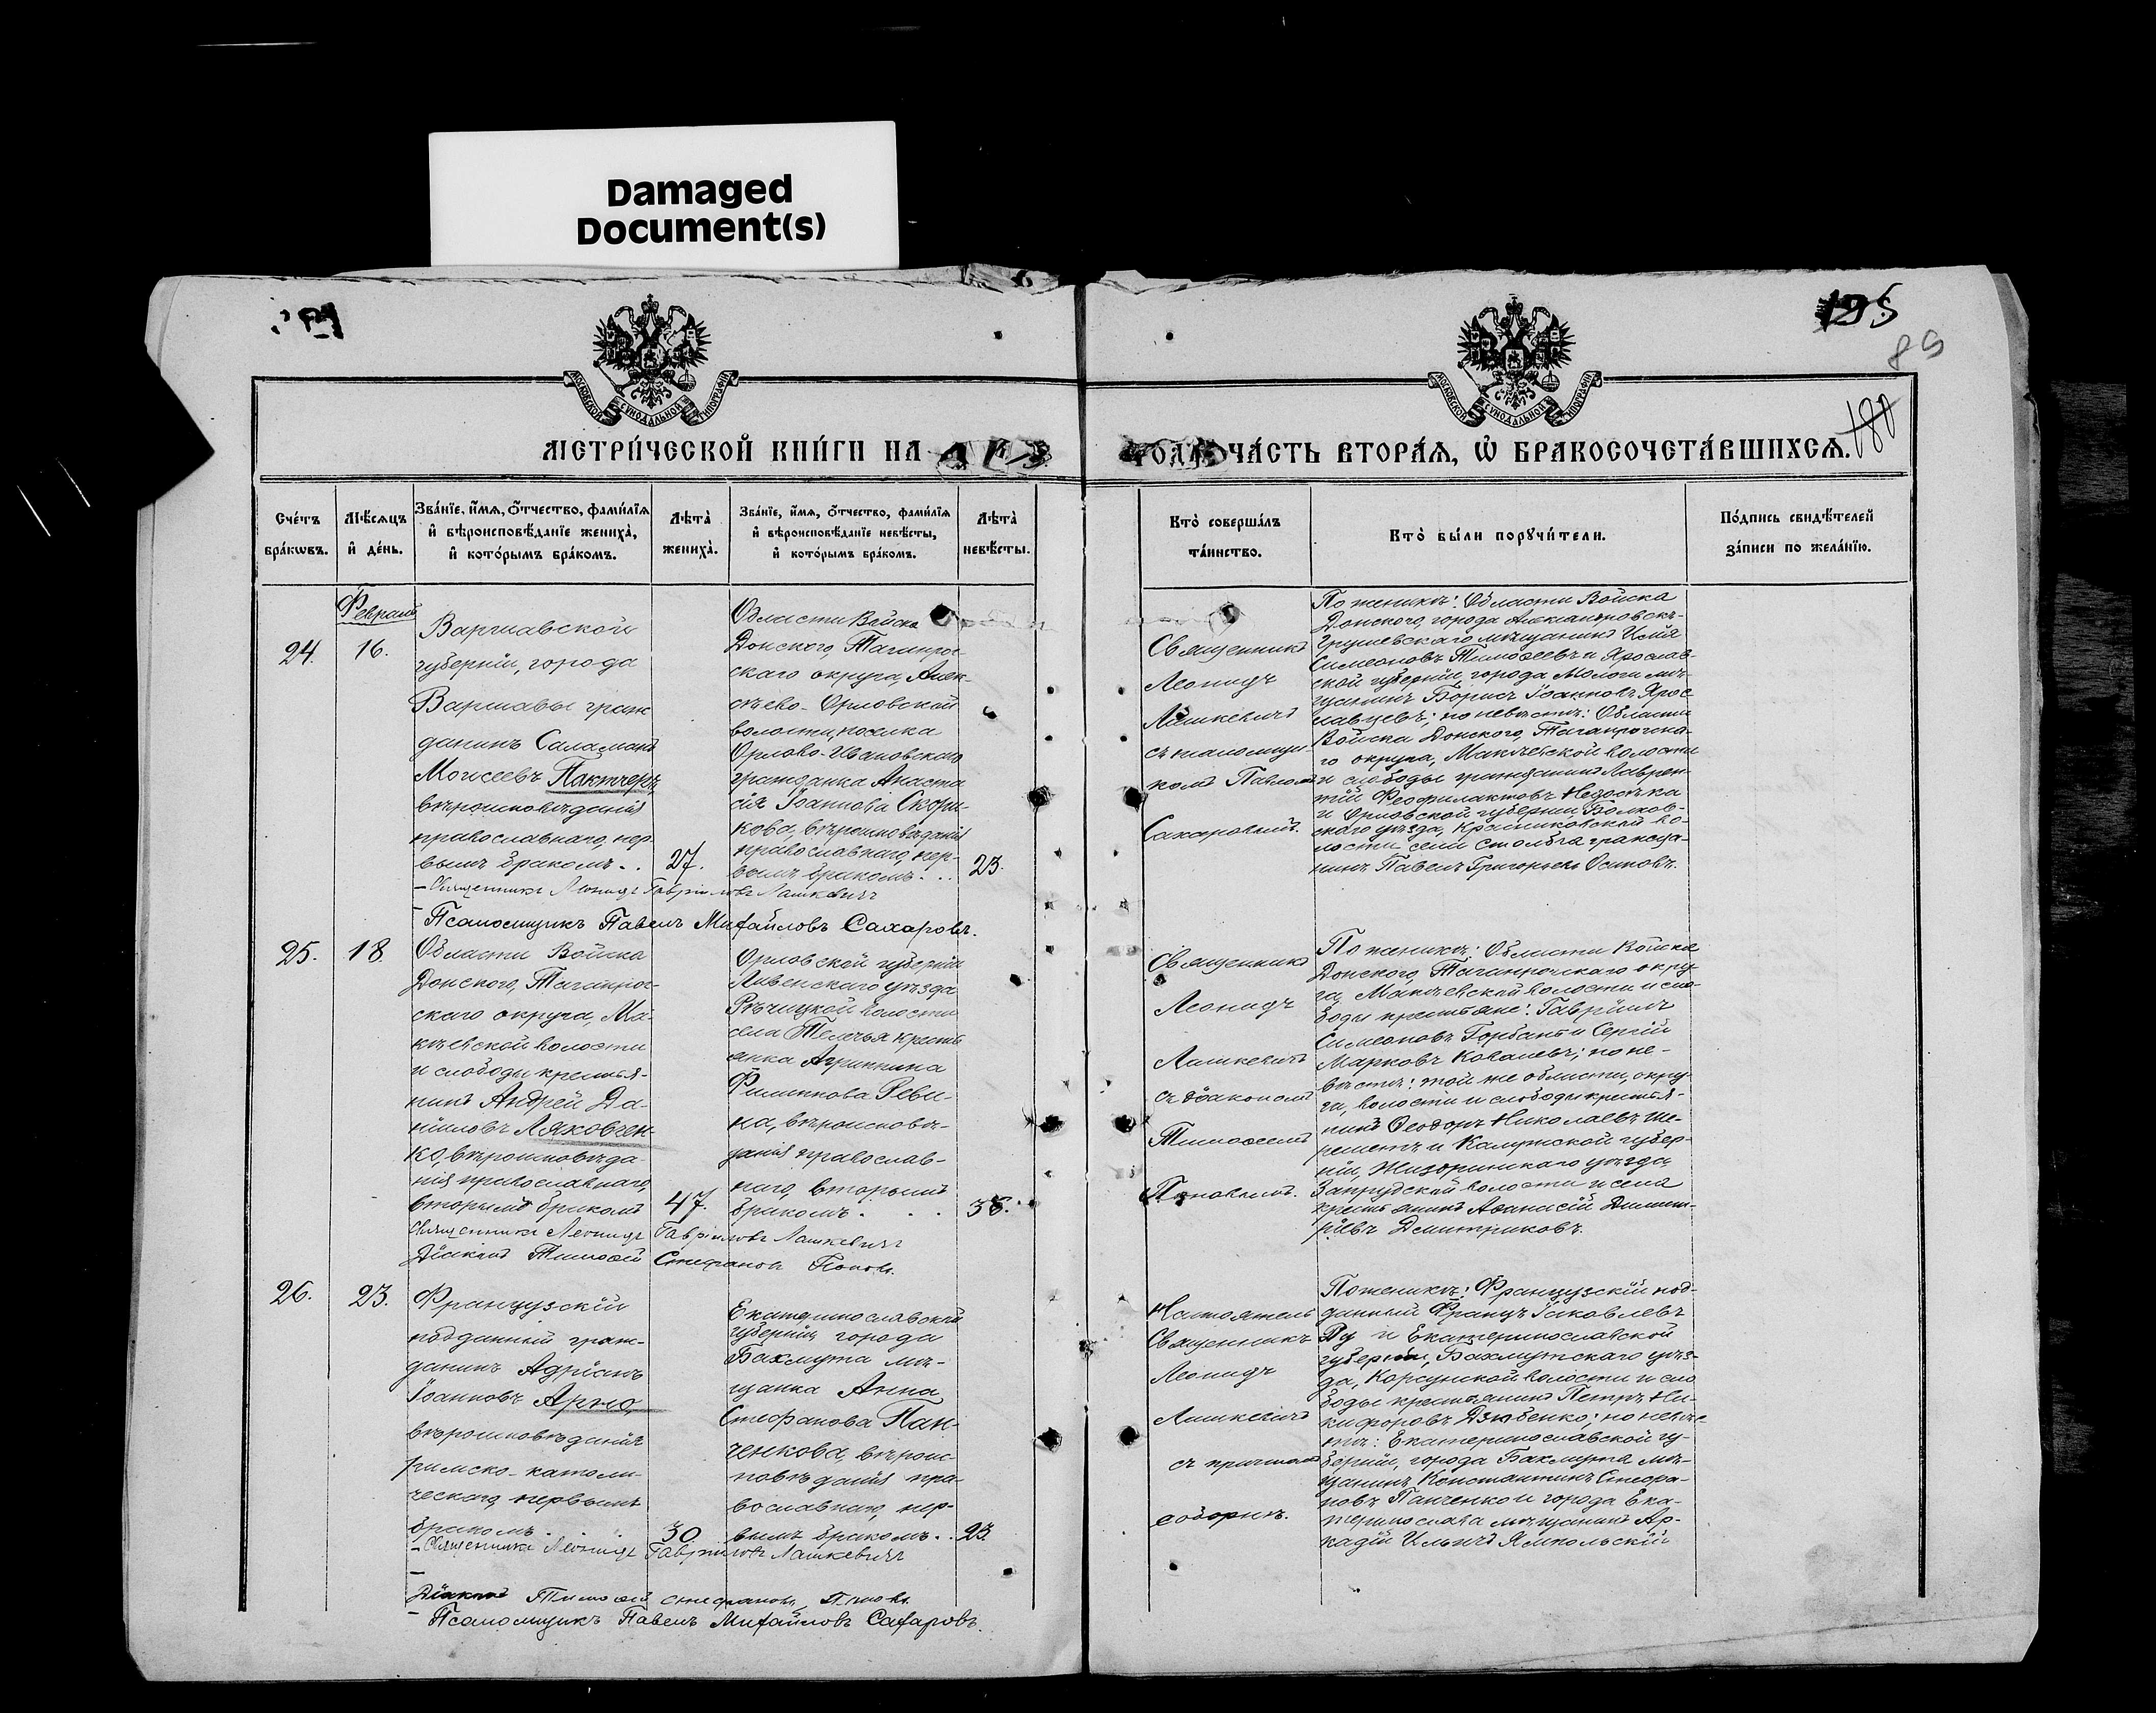 Damaged
Document(s)
89
180
МОСКОВСКОЙ СѴНОДАЛЬНОЙ ТИПОГРАФІИ
МОСКОВСКОЙ СѴНОДАЛЬНОЙ ТИПОГРАФІИ
МЕТРИ́ЧЕСКОЙ КНИ́ГИ НА
ЧА́СТЬ ВТОРА́Ѧ, Ѡ҆ БРАКОСОЧЕТА́ВШИХСѦ.
Сче́тъ
бра́кѡвъ.
Мѣ́сѧцъ
и҆ де́нь.
Зва́нїе, и҆́мѧ, ѻ҆́тчество, фами́лїѧ
и҆ вѣроисповѣ́данїе жениха̀,
и҆ кото́рымъ бра́комъ.
Лѣта̀
жениха̀.
Зва́нїе, и҆́мѧ, ѻ҆́тчество, фами́лїѧ
и҆ вѣроисповѣ́данїе невѣ́сты,
и҆ кото́рымъ бра́комъ.
Лѣта̀
невѣ́сты.
Кто̀ соверша́лъ
та́инство.
Кто̀ бы́ли порꙋчи́тели.
По́дпись свидѣ́телей
за́писи по жела́нїю.
Февраль
24.
16.
Варшавской
губерніи, города
Варшавы граж
данинъ Саламонъ
Моисеевъ Пактчеръ,
вѣроисповѣданія
православнаго, пер
вымъ бракомъ..
27.
Области Войска
Донского, Таганрог
скаго округа, Алек-
сѣево-Орловской
волости, поселка
Орлово-Ивановскаго
гражданка Анаста
сія Іоаннова Скори-
кова, вѣроисповѣданія
православнаго, пер-
вымъ бракомъ...
23.
Священникъ
Леонидъ
Лашкевичъ
съ псаломщи-
комъ Павломъ
Сахаровымъ.
По женихѣ: Области Войска
Донского, города Александровскъ-
Грушевскаго мѣщанинъ Илія
Симеоновъ Тимофеевъ и Ярослав-
ской губерніи, города Мологи мѣ-
щанинъ Борисъ Іоанновъ Ярос
лавцевъ; по невѣстѣ: Области
Войска Донского, Таганрогска-
го округа, Макѣевской волости
и слободы гражданинъ Лаврен-
тій Феофилактовъ Недосѣка
и Орловской губерніи, Болхов-
скаго уѣзда, Крашниковской во-
лости села Столбча гражда-
нинъ Павелъ Григорьевъ Осиповъ.
Священникъ Леонидъ Гавріиловъ Лашкевичъ
Псаломщикъ Павелъ Михайловъ Сахаровъ.
25.
18.
Области Войска
Донского, Таганрог-
скаго округа, Ма-
кѣевской волости
и слободы крестья-
нинъ Андрей Да-
ніиловъ Ляховчен-
ко, вѣроисповѣда
нія православнаго,
вторымъ бракомъ
47.
Орловской губерніи
Ливенскаго уѣзда
Рѣчицкой волости
села Телечья кресть
янка Агриппина
Филиппова Реви-
на, вѣроисповѣ-
данія православ-
наго, вторымъ
бракомъ...
38.
Священникъ
Леонидъ
Лашкевичъ
съ діакономъ
Тимофеемъ
Поповымъ.
По женихѣ: Области Войска
Донского, Таганрогскаго окру-
га, Макѣевской волости и сло-
боды крестьяне: Гавріилъ
Симеоновъ Горбань и Сергій
Марковъ Ковалевъ; по не-
вѣстѣ: той же области, окру-
га, волости и слободы крестья-
нинъ Ѳеодоръ Николаевъ Ше-
реметъ и Калужской губер-
ніи, Жиздринскаго уѣзда,
Запрудской волости и села
крестьянинъ Аѳанасій Димит-
ріевъ Дмитриковъ.
Священникъ Леонидъ Гавріиловъ Лашкевичъ
Діаконъ Тимоѳей Стефановъ Поповъ.
26.
23.
Французскій
подданный граж-
данинъ Адріанъ
Іоанновъ Арно,
вѣроисповѣданія
римско-католи-
ческаго, первымъ
бракомъ...
30
Екатеринославской
губерніи города
Бахмута мѣ-
щанка Анна
Стефанова Пан-
ченкова, вѣроис-
повѣданія пра-
вославнаго, пер-
вымъ бракомъ..
23.
Настоятель
Священникъ
Леонидъ
Лашкевичъ
съ причтомъ
соборнѣ.
По женихѣ: Французскій под-
данный Францъ Іаковлевъ
Ру и Екатеринославской
губерніи, Бахмутскаго уѣз-
да, Корсунской волости и сло
боды крестьянинъ Петръ Ни-
кифоровъ Дзюбенко; по невѣс-
тѣ: Екатеринославской гу-
берніи, города Бахмута мѣ-
щанинъ Константинъ Стефа-
новъ Панченко и города Ека-
теринослава мѣщанинъ Ар-
кадій Ильичъ Ямпольскій
Священникъ Леонидъ Гавріиловъ Лашкевичъ
Діаконъ Тимоѳей Стефановъ Поповъ
Псаломщикъ Павелъ Михайловъ Сахаровъ.